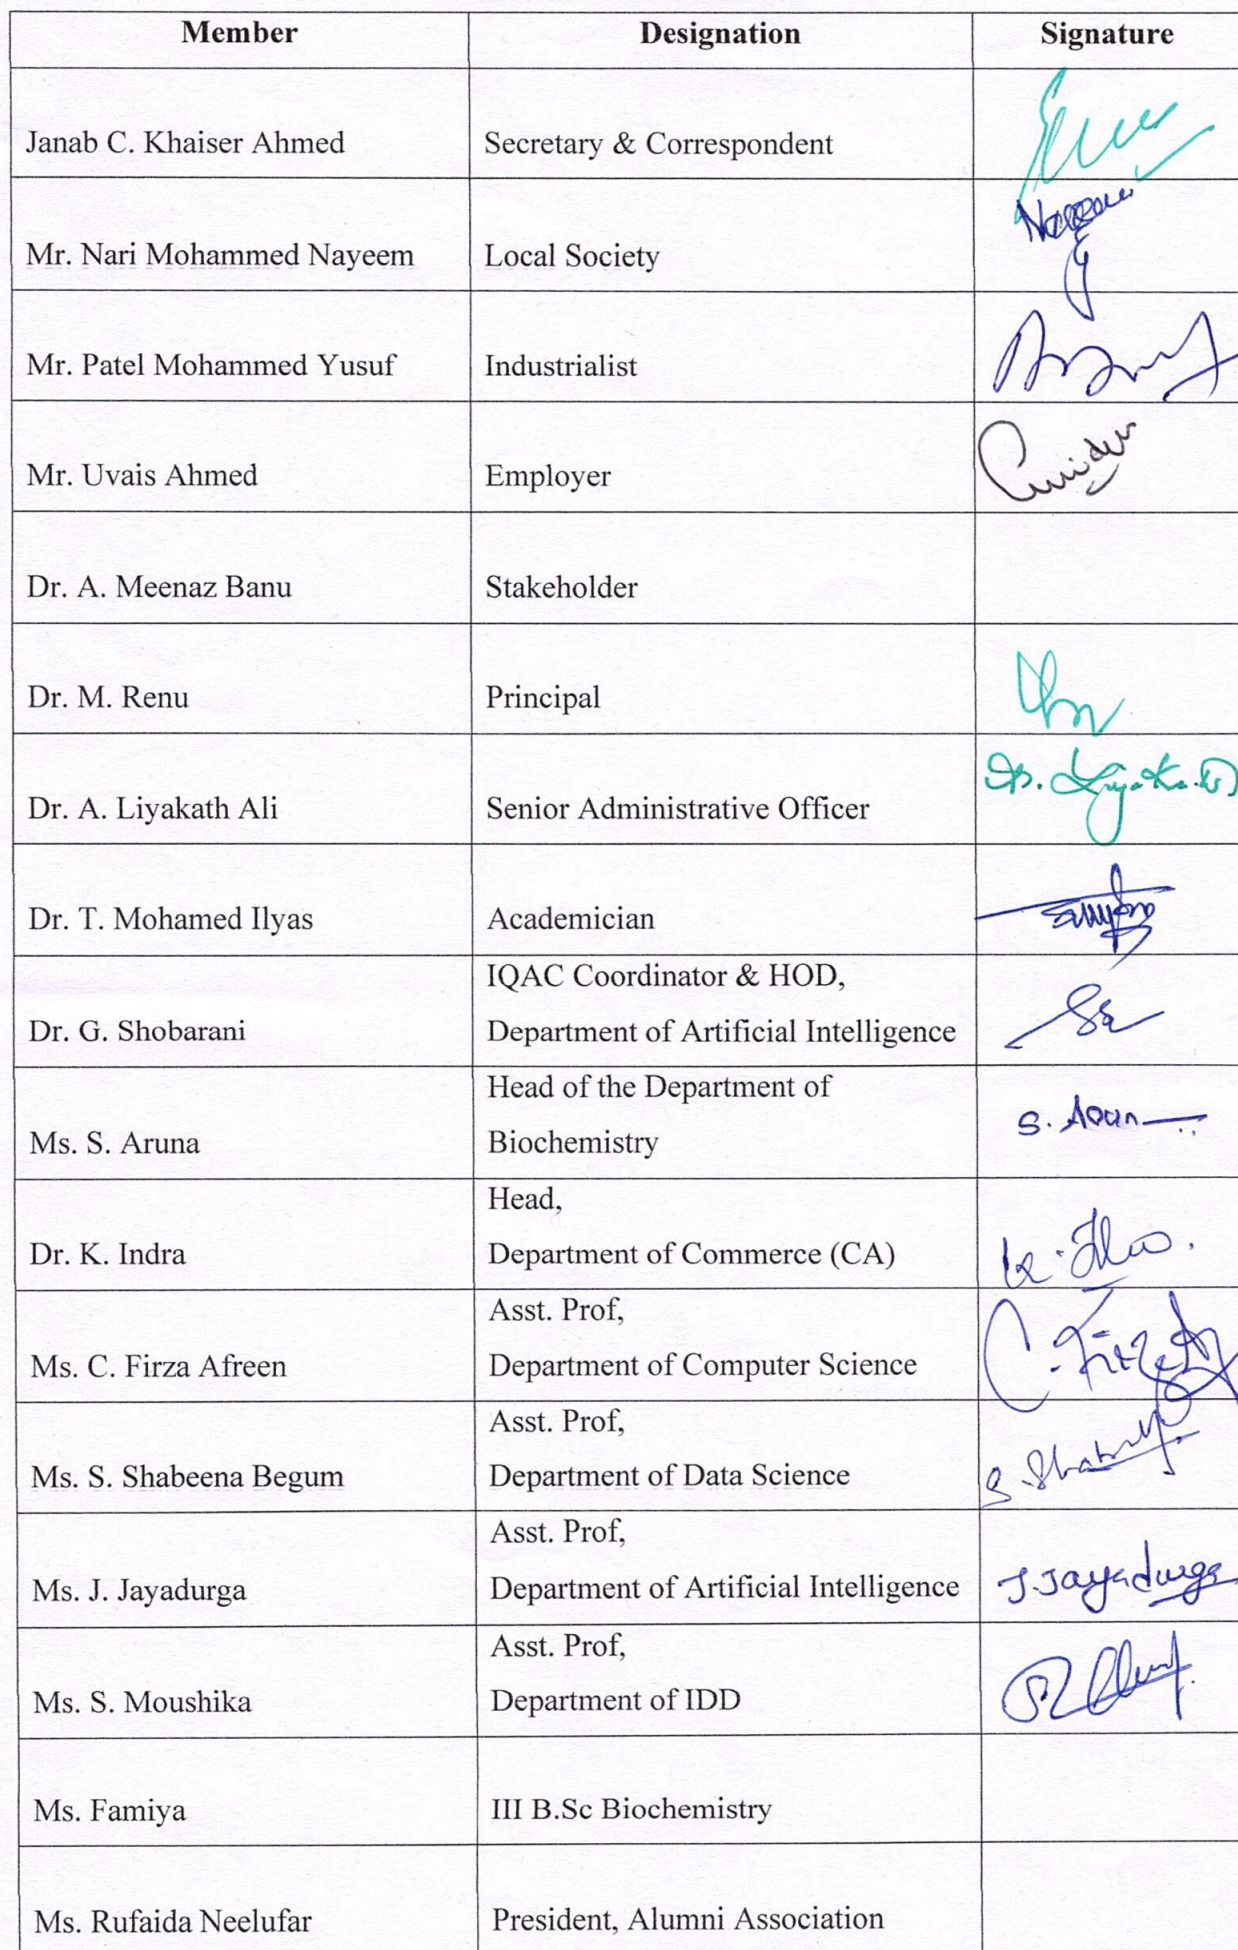 Member Designation Signature
Janab C. Khaiser Ahmed Secretary & Correspondent
Mr. Nari Mohammed Nayeem Local Society
Mr. Patel Mohammed Yusuf Industrialist
Mr. Uvais Ahmed Employer
Dr. A. Meenaz Banu Stakeholder
Dr. M. Renu Principal
Dr. A. Liyakath Ali Senior Administrative Officer
Dr. T. Mohamed Ilyas Academician
IQAC Coordinator & HOD,
Dr. G. Shobarani Department of Artificial Intelligence
Head of the Department of
Ms. S. Aruna Biochemistry
Head,
Dr. K. Indra Department of Commerce (CA)
Asst. Prof,
Ms. C. Firza Afreen Department of Computer Science
Asst. Prof,
Ms. S. Shabeena Begum Department of Data Science
Asst. Prof,
Ms. J. Jayadurga Department of Artificial Intelligence J. Jayadurga
Asst. Prof,
Ms. S. Moushika Department of IDD
Ms. Famiya III B.Sc Biochemistry
Ms. Rufaida Neelufar President, Alumni Association